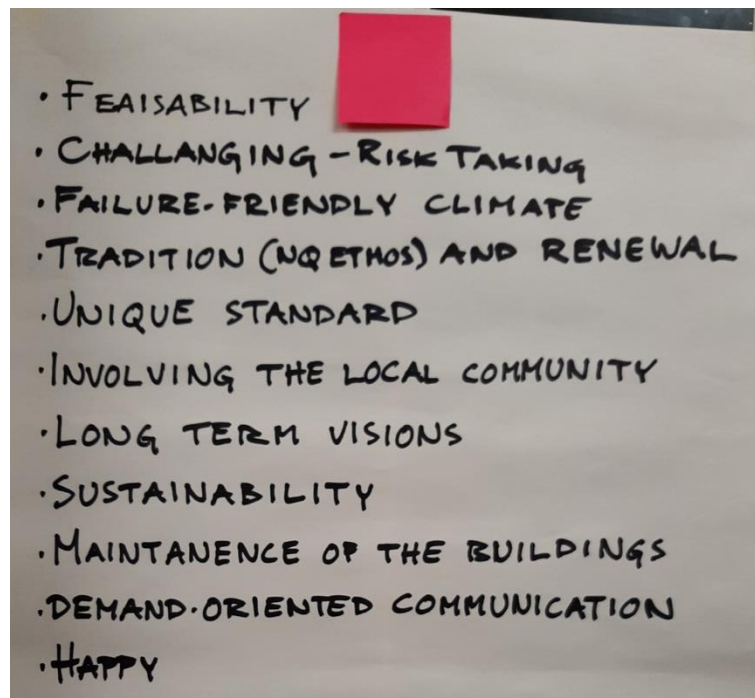 · FEAISABILITY
· CHALLANGING - RISK TAKING
· FAILURE-FRIENDLY CLIMATE
· TRADITION (NQ ETHOS) AND RENEWAL
· UNIQUE STANDARD
· INVOLVING THE LOCAL COMMUNITY
· LONG TERM VISIONS
· SUSTAINABILITY
· MAINTANENCE OF THE BUILDINGS
· DEMAND-ORIENTED COMMUNICATION
· HAPPY